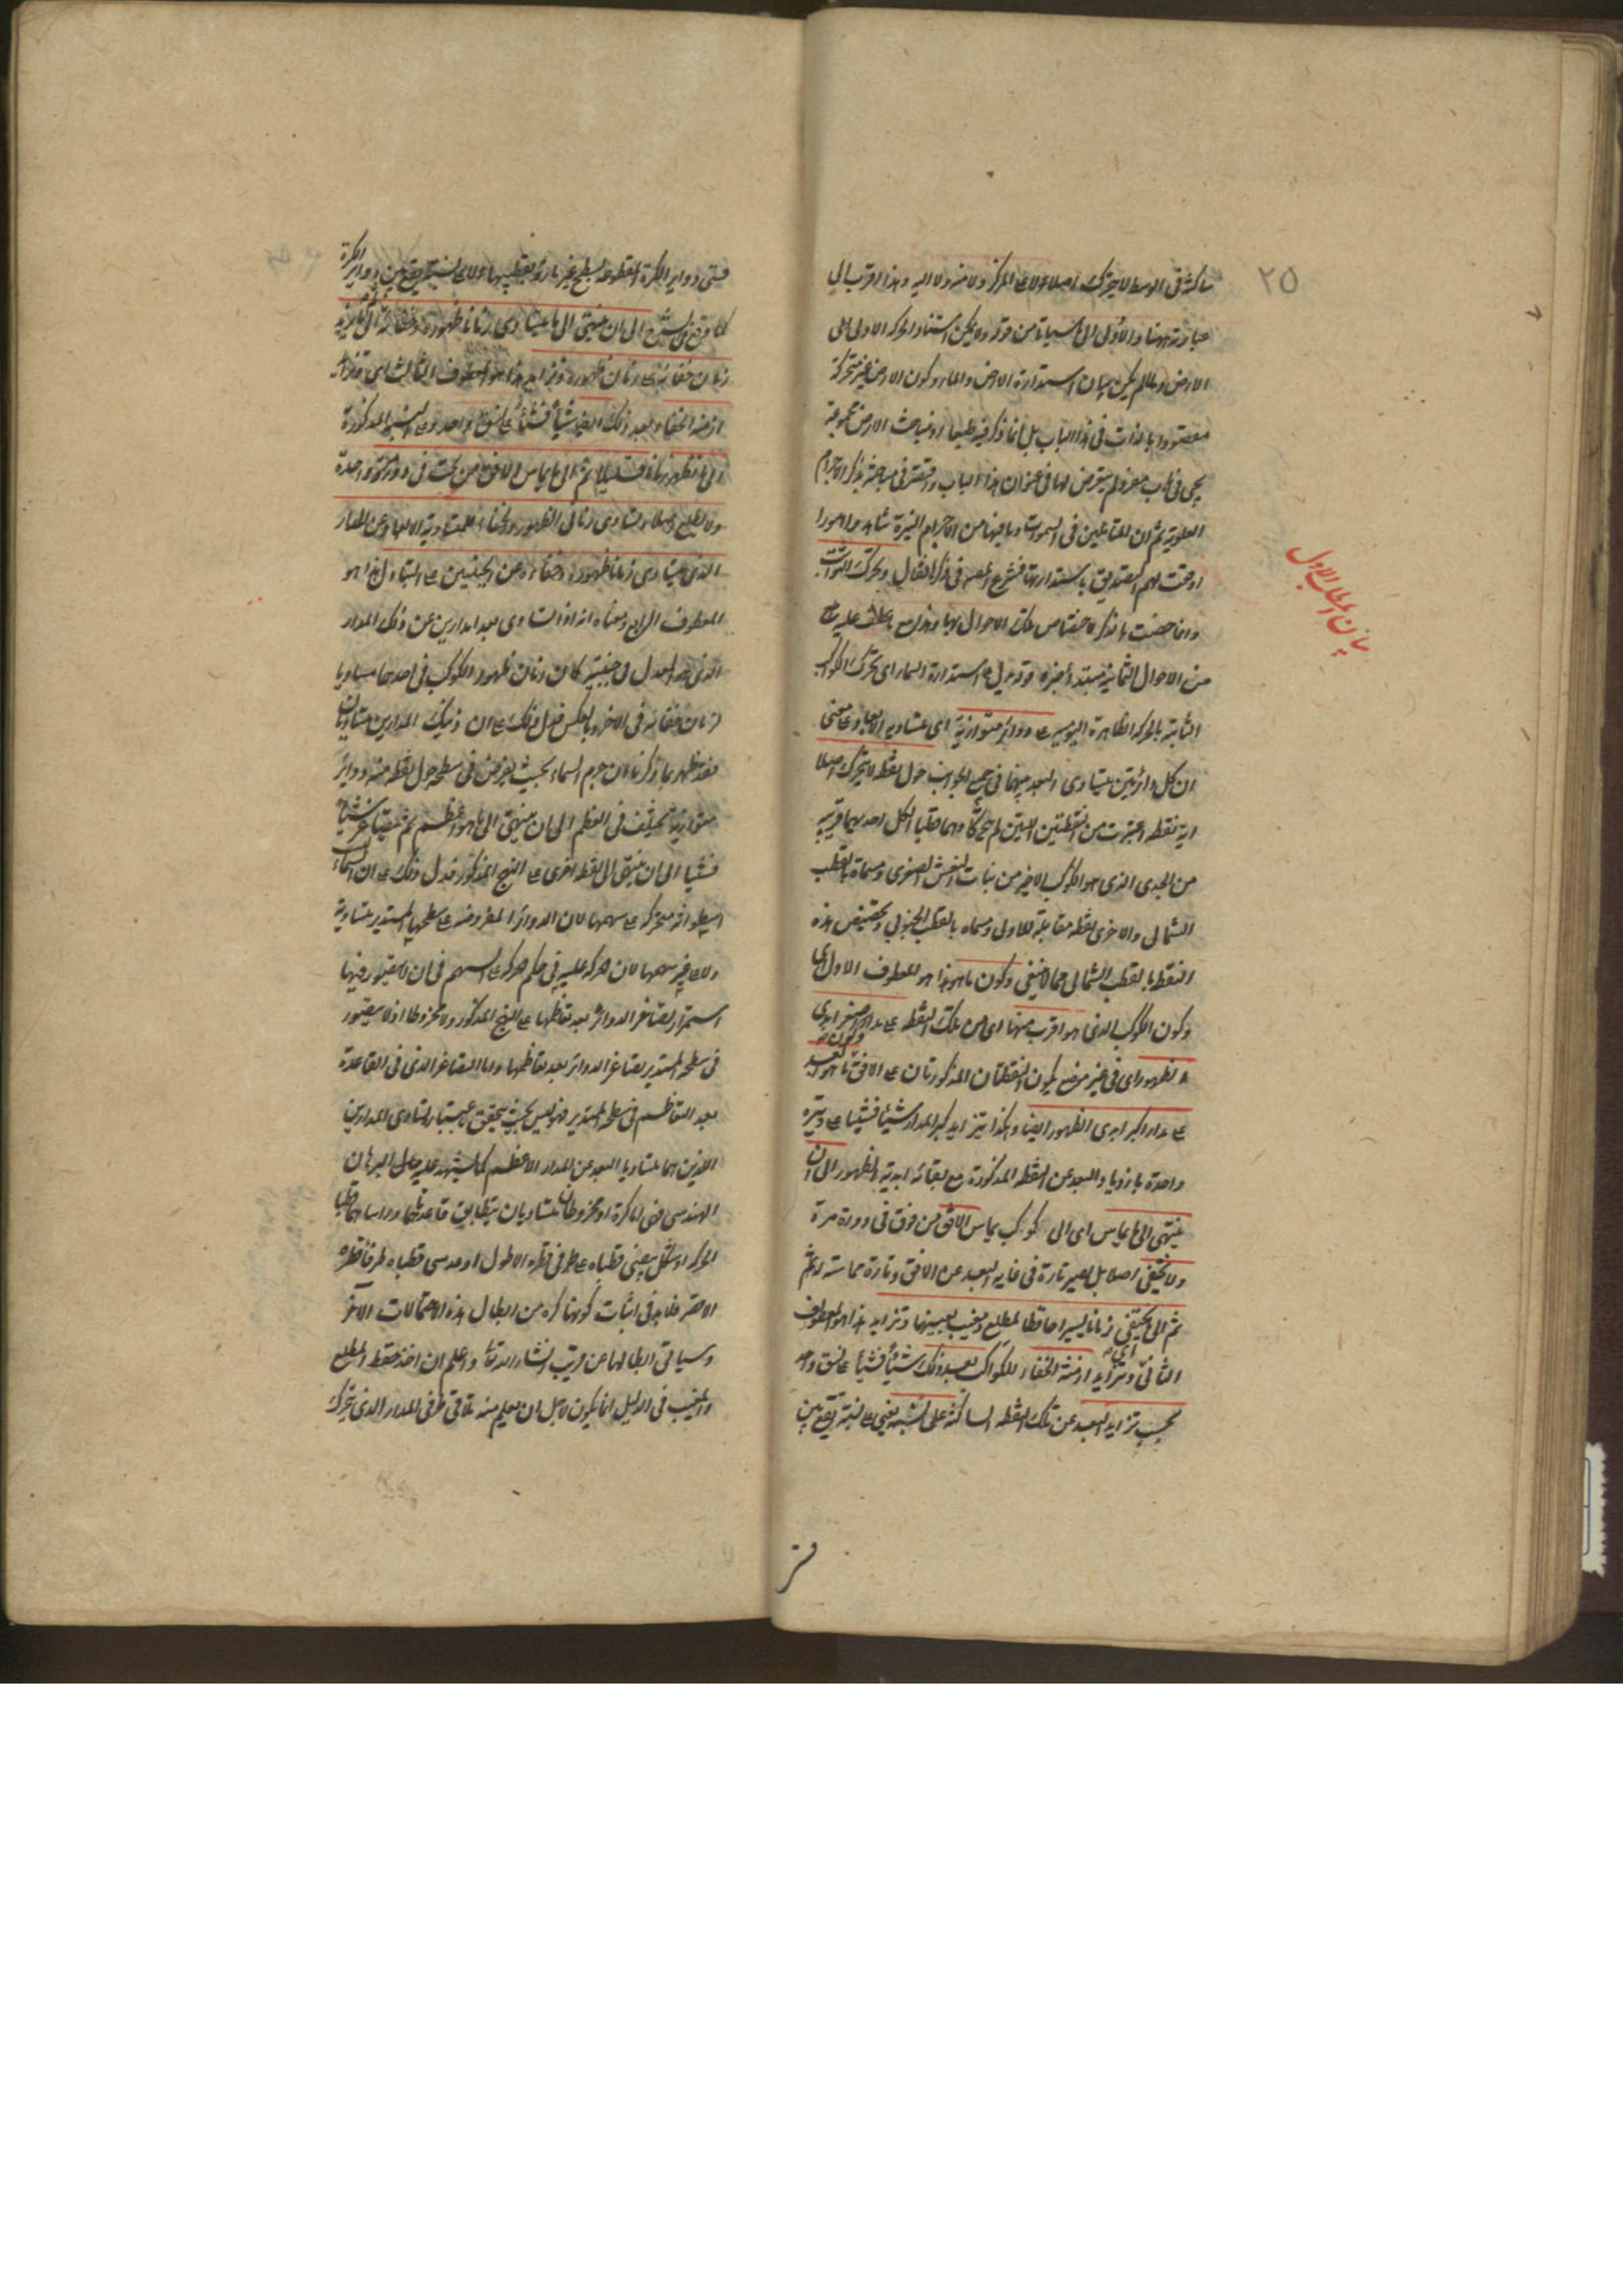 ٢٥
ساكنة فى الوسط لا يتحرك اصلا لا على المركز ولا منه ولا اليه وهذا اقرب الى
عبارته ههنا والاولى الى ما سيأتى من قوله ولا يمكن استناد الحركة الاولى الى
الارض ولما لم يكن بيان استدارة الارض والماء وكون الارض غير متحركة
مقصودا بالذات فى هذا الباب بل انما ذكر فيه طبعا اذ مباحث الارض مجموعة
يجئ فى باب مفرد لم يتعرض لها فى عنوان هذا الباب واقتصر فى مباحثه بذكر الاجرام
العلوية ثم ان للمتأملين فى السموات وما فيها من الاجرام النيرة شاهدوا امورا
اوجبت لهم التصديق باستدارتها فشرع المصنف فى ذكرها فقال وتحرك الثوابت
وانما خصت بالذكر لاختصاص تلك الاحوال بها وهذا مع ما عطف عليه
من الاحوال الثمانية مبتدأ خبره قوله يدل على استدارة السماء اى تحرك الكواكب
الثابتة بالحركة الظاهرة اليومية على دوائر متوازية اى متساوية الابعاد على معنى
ان كل دائرتين يتساوى البعد بينهما فى جميع الجوانب حول نقطة لا تتحرك اصلا
اية نقطة اعتبرت من النقطتين اللتين لم يتحركا وهما قطبا الكل احديهما قريبة
من الجدى الذى هو الكوكب الاخير من بنات النعش الصغرى ومسماة بالقطب
الشمالى والاخرى نقطة مقابلة للاولى ومسماه بالقطب الجنوبى وتخصيص هذه
النقطة بالقطب الشمالى مما لا ينبغى وكون ما هو هذا هو المعطوف الاول اى
وكون الكوكب الذى هو اقرب منها اى من تلك النقطة على مدار اصغر ابدى
الظهور اى فى غير موضع يكون النقطتان المذكورتان على الافق وكون ما هو ابعد
على مدار اكبر ابدى الظهور ايضا وهكذا يتزايد كبر المدار شيئا فشيئا على وتيرة
واحدة بازدياد البعد عن النقطة المذكورة مع بقائه ابدية الظهور الى ان
ينتهى الى ما يماس اى الى كوكب يماس الافق من فوق فى دورة مرة
ولا يختفى اصلا بل يصير تارة فى غاية البعد عن الافق وتارة مماسته له ثم
ثم الى ما يختفى زمانا يسيرا حافظا لمطلع ومغيب بعينهما وتزايد هذا هو المعطوف
الثانى اى وتزايد ازمنة الخفاء للكواكب بعد ذلك شيئا فشيئا على نسق واحد
بحسب تزايد البعد عن تلك النقطة الساكنة على نسبة يعنى على نسبة تقع بين
بيان المطلب الاول
قسى دوائر الكرة المقطوعة بسطح غير مارة بقطبيها لا على نسبة تقع بين دوائر الكرة
كما وقع فى الشرح الى ان ينتهى الى ما يتساوى زمانا ظهوره وخفائه ثم الى ما يزيد
زمان خفائه على زمان ظهوره وتزايد هذا هو المعطوف الثالث اى وتزايد
ازمنة الخفاء بعد ذلك ايضا شيئا فشيئا على نسق واحد وعلى النسبة المذكورة
الى ما تظهر زمانا قليلا ثم الى ما يماس الافق من تحت فى دورة مرة واحدة
ولا يطلع اصلا وتساوى زمانى الظهور والخفاء للمتساوية الابعاد عن المدار
الذى يتساوى زمانا ظهوره وخفائه عن الجنبتين على التبادل هذا هو
المعطوف الرابع ومعناه انه اذا تساوى بعد المدارين عن ذلك المدار
الذى هو المعدل فى جنبتيه كان زمان ظهور الكوكب فى احدهما مساويا
لزمان خفائه فى الاخر وبالعكس فدل ذلك على ان ذينك المدارين متساويان
فقد ظهر بما ذكرنا ان جرم السماء بحيث يفرض فى سطحه حول نقطة منه دوائر
متوازية تختلف فى العظم الى ان ينتهى الى ما هو اعظم ثم يتصاغر شيئا
فشيئا الى ان ينتهى الى نقطة اخرى على النهج المذكور فدل ذلك على ان السماء
اسطوانة متحركة على سهمها لان الدوائر المفروضة على سطحها المستدير متساوية
ولا على غير سهمها لان حركة عليه فى حكم حركة على السهم فى ان لا يتصور فيها
استمرار تصاغر الدوائر بعد تعاظمها على النهج المذكور ولا مخروطا اذ لا يتصور
فى سطحه المستدير تصاغر الدوائر بعد تعاظمها واما التصاغر الذى فى القاعدة
بعد التعاظم فى سطحه المستدير فهو ليس بحيث يتحقق باعتبار تساوى المدارين
اللذين هما متساويا البعد عن المدار الاعظم كما يشهد عليه البرهان
الهندسى فهى اما كرة او مخروطان متساويان يتطابق قاعدتهما وراساهما قطبا
الحركة او شكل بيضى قطباه على طرفى قطره الاطول او عدسى قطباه طرفا قطره
الاقصر فلا بد فى اثبات كونها كرة من ابطال هذه الاحتمالات الاخر
وسيأتى ابطالها عن قريب انشاء الله تعالى واعلم ان اخذ حفظ المطلع
والمغيب فى الدليل انما يكون لاجل ان يعلم منه تلاقى طرفى المدار الذى يتحرك